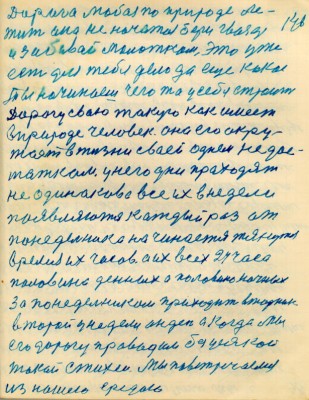 146
Дорога любая по природе ле-
жит она не начатая бери гвозд
и забивай молотком, это уже
есть для тебя дело да еще какое
Ты начинаем чего то у себя строить
Дорогу свою такую как имеет
в природе человек. она его окру-
жает в жизни своей одним недос-
татком, у него дни приходят
не одинаково все их в неделе
появляются каждый раз от
понедельника начинается тянутся
время их часов а их всех 24 часа
половина денных а половина ночных
за понедельником приходит вторник
второй у недели он день а когда мы
его дорогу проводим
такой стихеи мы повстречаемся
из нашею средою